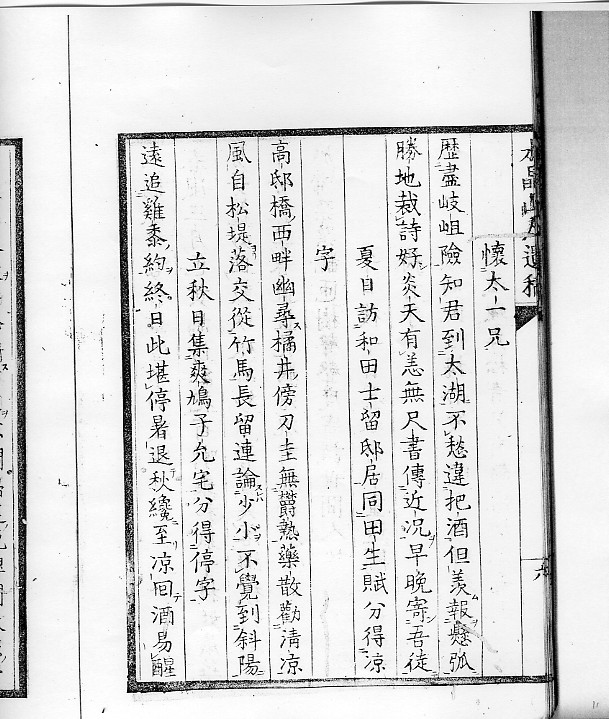 懷太一兄
歴盡岐岨險知君到太湖不愁違把酒但羨報懸弧
勝地裁詩好炎天有恙無尺書傳近況早晩寄吾徒
夏日訪和田士留邸居同田生賦分得涼
字
高邸橋西畔幽尋橘井傍刀圭無欝熱藥散勸清涼
風自松堤落交從竹馬長留連論少小不覺到斜陽
立秋日集爽鳩子允宅分得停字
遠追雞黍約終日此堪停暑退秋纔至涼回酒易醒
六